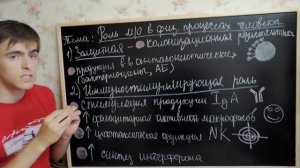 Тема: Роль м/о в физ. процессах человека
1) Защитная
колонизационная резистентность
продукция в-в антагонистических
(бактериоцины, АБ)
2) Иммуностимулирующая роль
стимуляция продукции Ig A
↑ фагоцитарная активность макрофагов
↑ цитотоксическая функция NK
↑ синтез интерферона